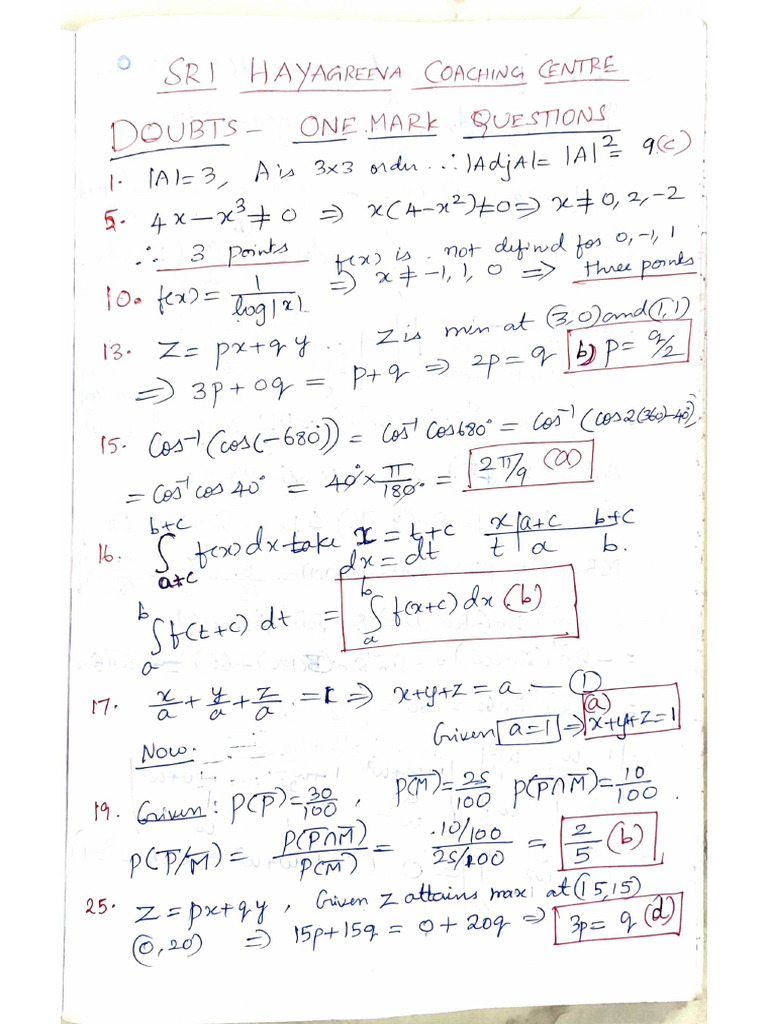 SRI HAYAGREEVA COACHING CENTRE
DOUBTS - ONE MARK QUESTIONS
1. |A|=3, A is 3x3 order ..∴ |AdjA|= |A|²= 9(c)
5. 4x-x³≠0 ⇒ x(4-x²)≠0 ⇒ x≠0,2,-2
∴ 3 points f(x) is not defined for 0,-1,1
10. f(x)= 1/log|x| ⇒ x≠-1,1,0 ⇒ three points
13. Z= px+qy .. Z is min at (3,0) and (1,1)
⇒ 3p+0q = p+q ⇒ 2p=q b) p= q/2
15. Cos⁻¹(cos(-680°)) = Cos⁻¹ Cos680° = Cos⁻¹(cos2(360)-40°)
= Cos⁻¹cos 40° = 40°×π/180° = 2π/9 (a)
16. ∫_{a+c}^{b+c} f(x)dx take x = t+c x|a+c b+c
dx = dt t|a b.
∫_a^b f(t+c) dt = ∫_a^b f(x+c) dx (b)
17. x/a + y/a + z/a = 1 ⇒ x+y+z = a - ①
Now. Given a=1 ⇒ (a) x+y+z=1
19. Given: P(P̅)=30/100, P(M̅)=25/100 P(P̅∩M̅)=10/100.
P(P̅/M̅) = P(P̅∩M̅)/P(M̅) = 10/100/25/100 = 2/5 (b)
25. Z=px+qy, Given Z attains max at (15,15)
(0,20) ⇒ 15p+15q = 0+20q ⇒ 3p= q (d)